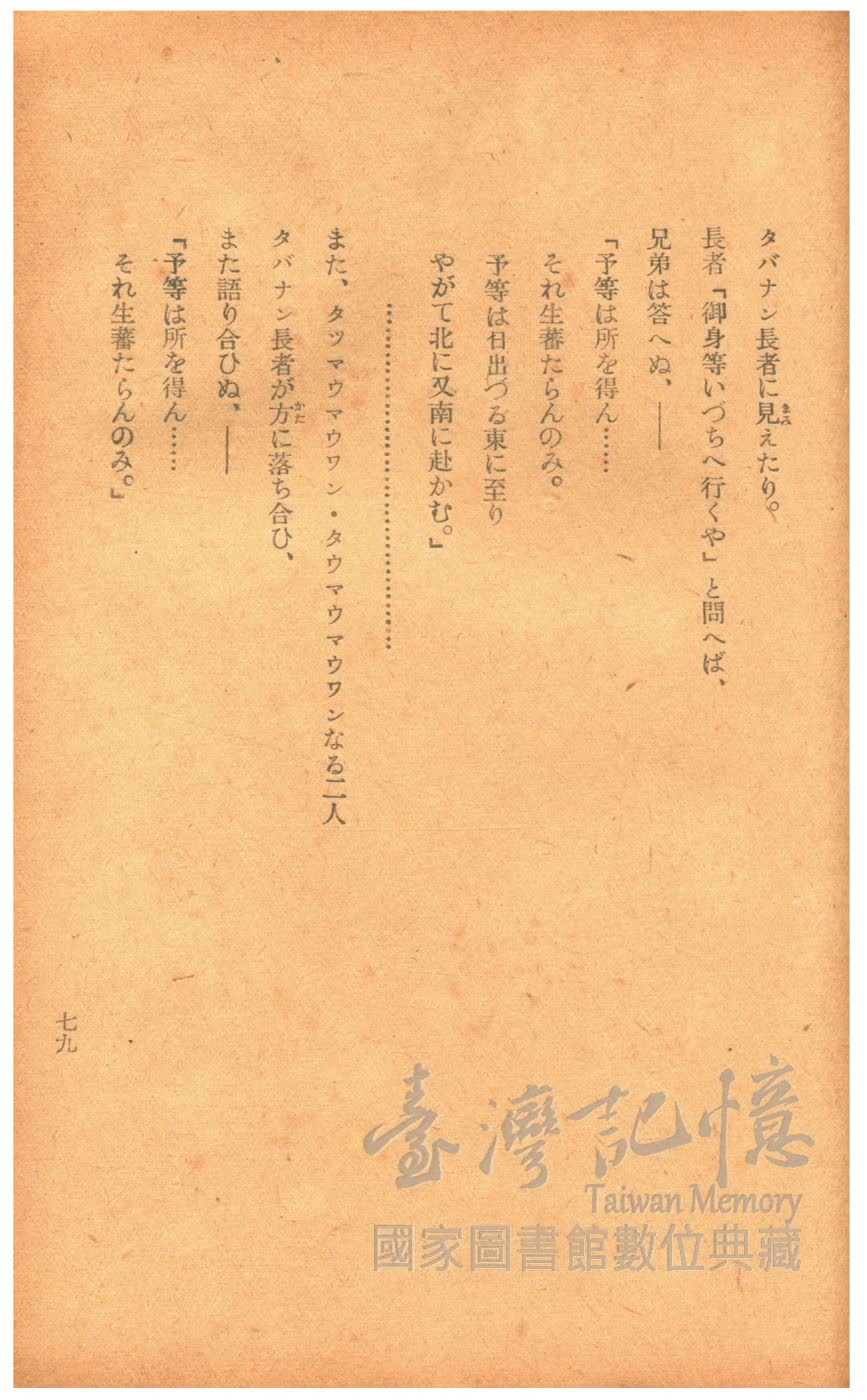 タバナン長者に見えたり。
まみ
長者「御身等いづちへ行くや」と問へば、
兄弟は答へぬ、——
「予等は所を得ん……
それ生蕃たらんのみ。
予等は日出づる東に至り
やがて北に又南に赴かむ。」
…………………………………………
また、タツマウマウワン・タウマウマウワンなる二人
タバナン長者が方に落ち合ひ、
かた
また語り合ひぬ、——
「予等は所を得ん……
それ生蕃たらんのみ。」
七九
臺灣記憶
Taiwan Memory
國家圖書館數位典藏